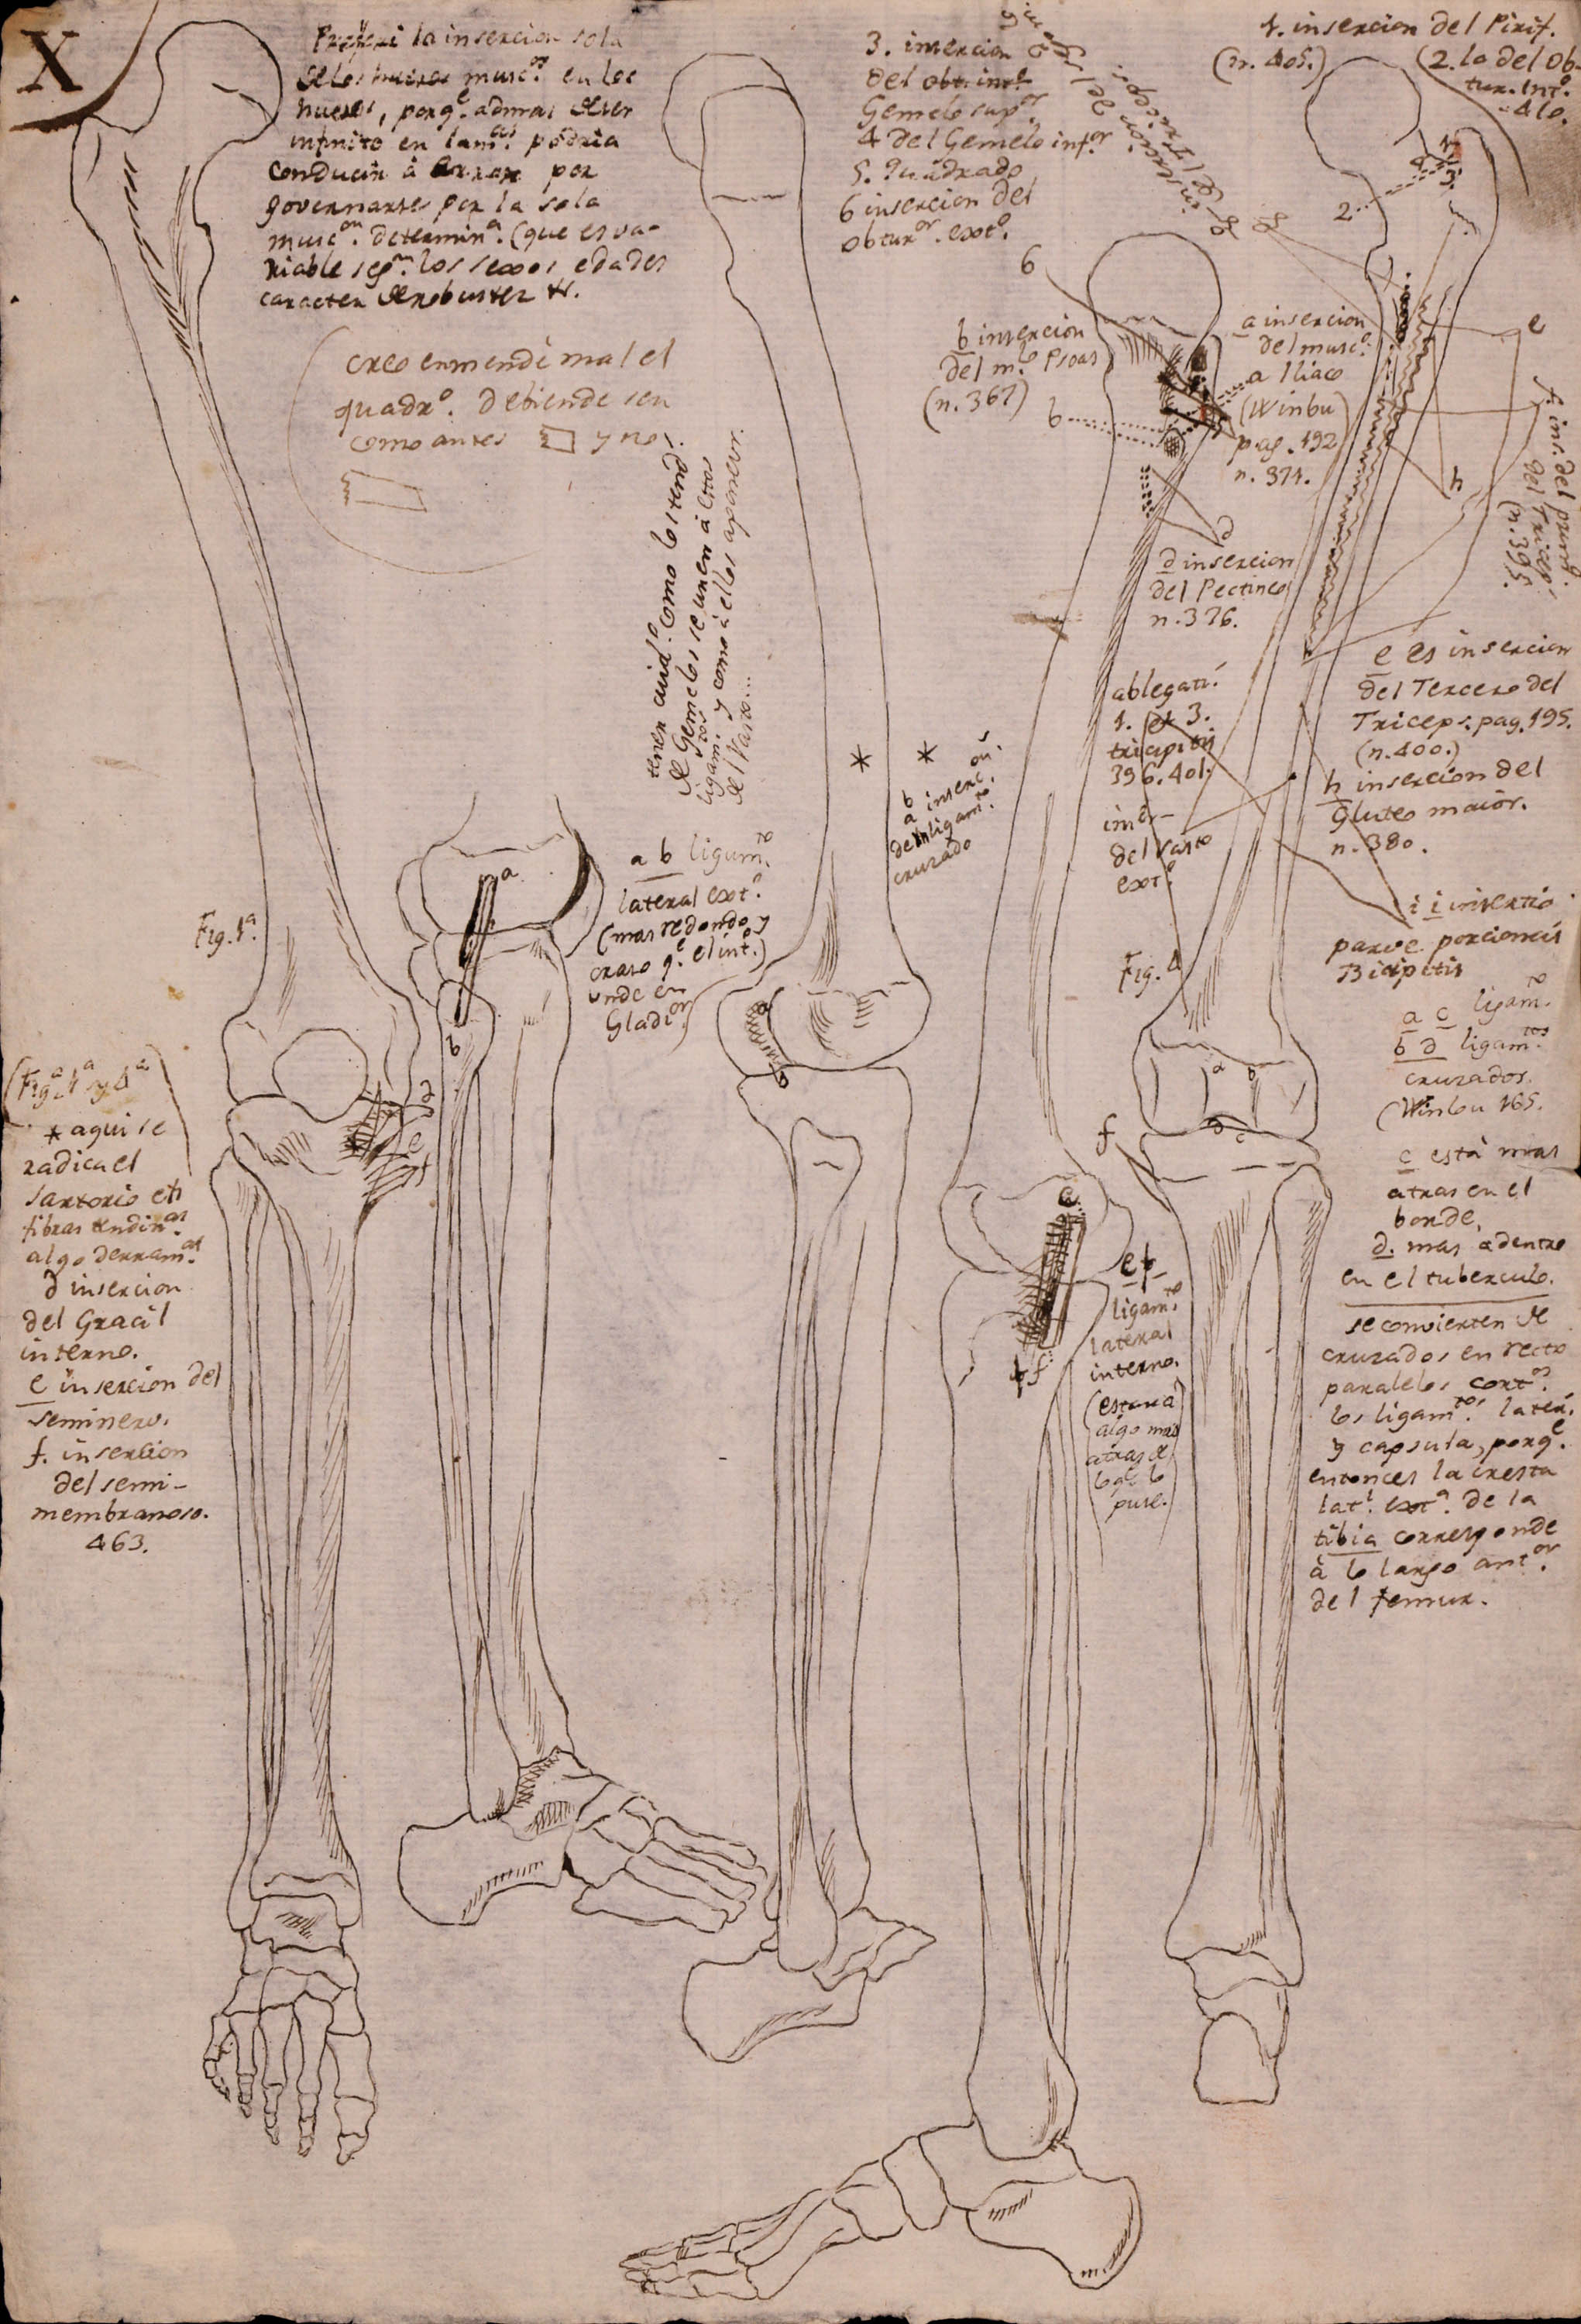 X
Preferi la insercion sola
de los musc.os en los
huesos, porq.e adimas deser
infinito en lam.as podria
conducir à errar por
governarse por la sola
musc.on determin.a (que es va-
riable seg.n los sexos edades
caracter de robustez &.
creo enmendé mal el
quadr.o. debiendo ser
como antes y no
tener cuid.o como los tend.s
de Gemelos se unen à
ligam.tos y como à ellos aponevr.
del Vasto...
3. insercion
del obt. int.o
Gemelo sup.or
4 del Gemelo inf.or
5. Quadrado
6 insercion del
obtur.or ext.o
1. insercion del Pirif.
(n. 405.)
(2. la del Ob-
tur. Int.o
410.
1
4
3
2
g
g. g insercion del
6
b insercion
del m.o Psoas
(n. 367)
b
a insercion
del musc.o
a Iliaco
(Winbu
pag. 192
n. 371.
e
f. ins. del prim.o
del Tricep.
(n. 395.
h
d
d insercion
del Pectineo
n. 376.
e es insercion
del Tercero del
Triceps. pag. 195.
(n. 400.)
h insercion del
Gluteo maior.
n. 380.
ablegati.
1. et 3.
tricipitis
396. 401.
inser-
del Vasto
ext.o
i i insertio
parve porcionis
Bicipitis
* *
b
a inserc.on
del ligam.to
cruzado
a
b
a b ligam.to
lateral ext.o
(mas redondo y
craso q.e el int.o)
unde en
Gladi.or
Fig. 1.a
Fig. 4
(Fig.a 1.a y 4.a
* aqui se
radica el
sartorio et
fibras tendin.as
algo derram.as
d insercion
del Gracil
interno.
e insercion del
seminerv.
f. insercion
del semi-
membranoso.
463.
d
e
f
a
b
a
b
d
c
f
a c ligam.to
b d ligam.tos
cruzados.
(Winbu 165.
c està mas
atras en el
borde,
d. mas adentro
en el tuberculo.
se convierten de
cruzados en recto
paralelos cort.os
los ligam.tos later.
y capsula, porq.e
entonces la cresta
lat.l ext.a de la
tibia corresponde
à lo largo ant.or
del femur.
e
f
e f
ligam.to
lateral
interno.
(estara
algo mas
atras de
lo q.e lo
puse.)